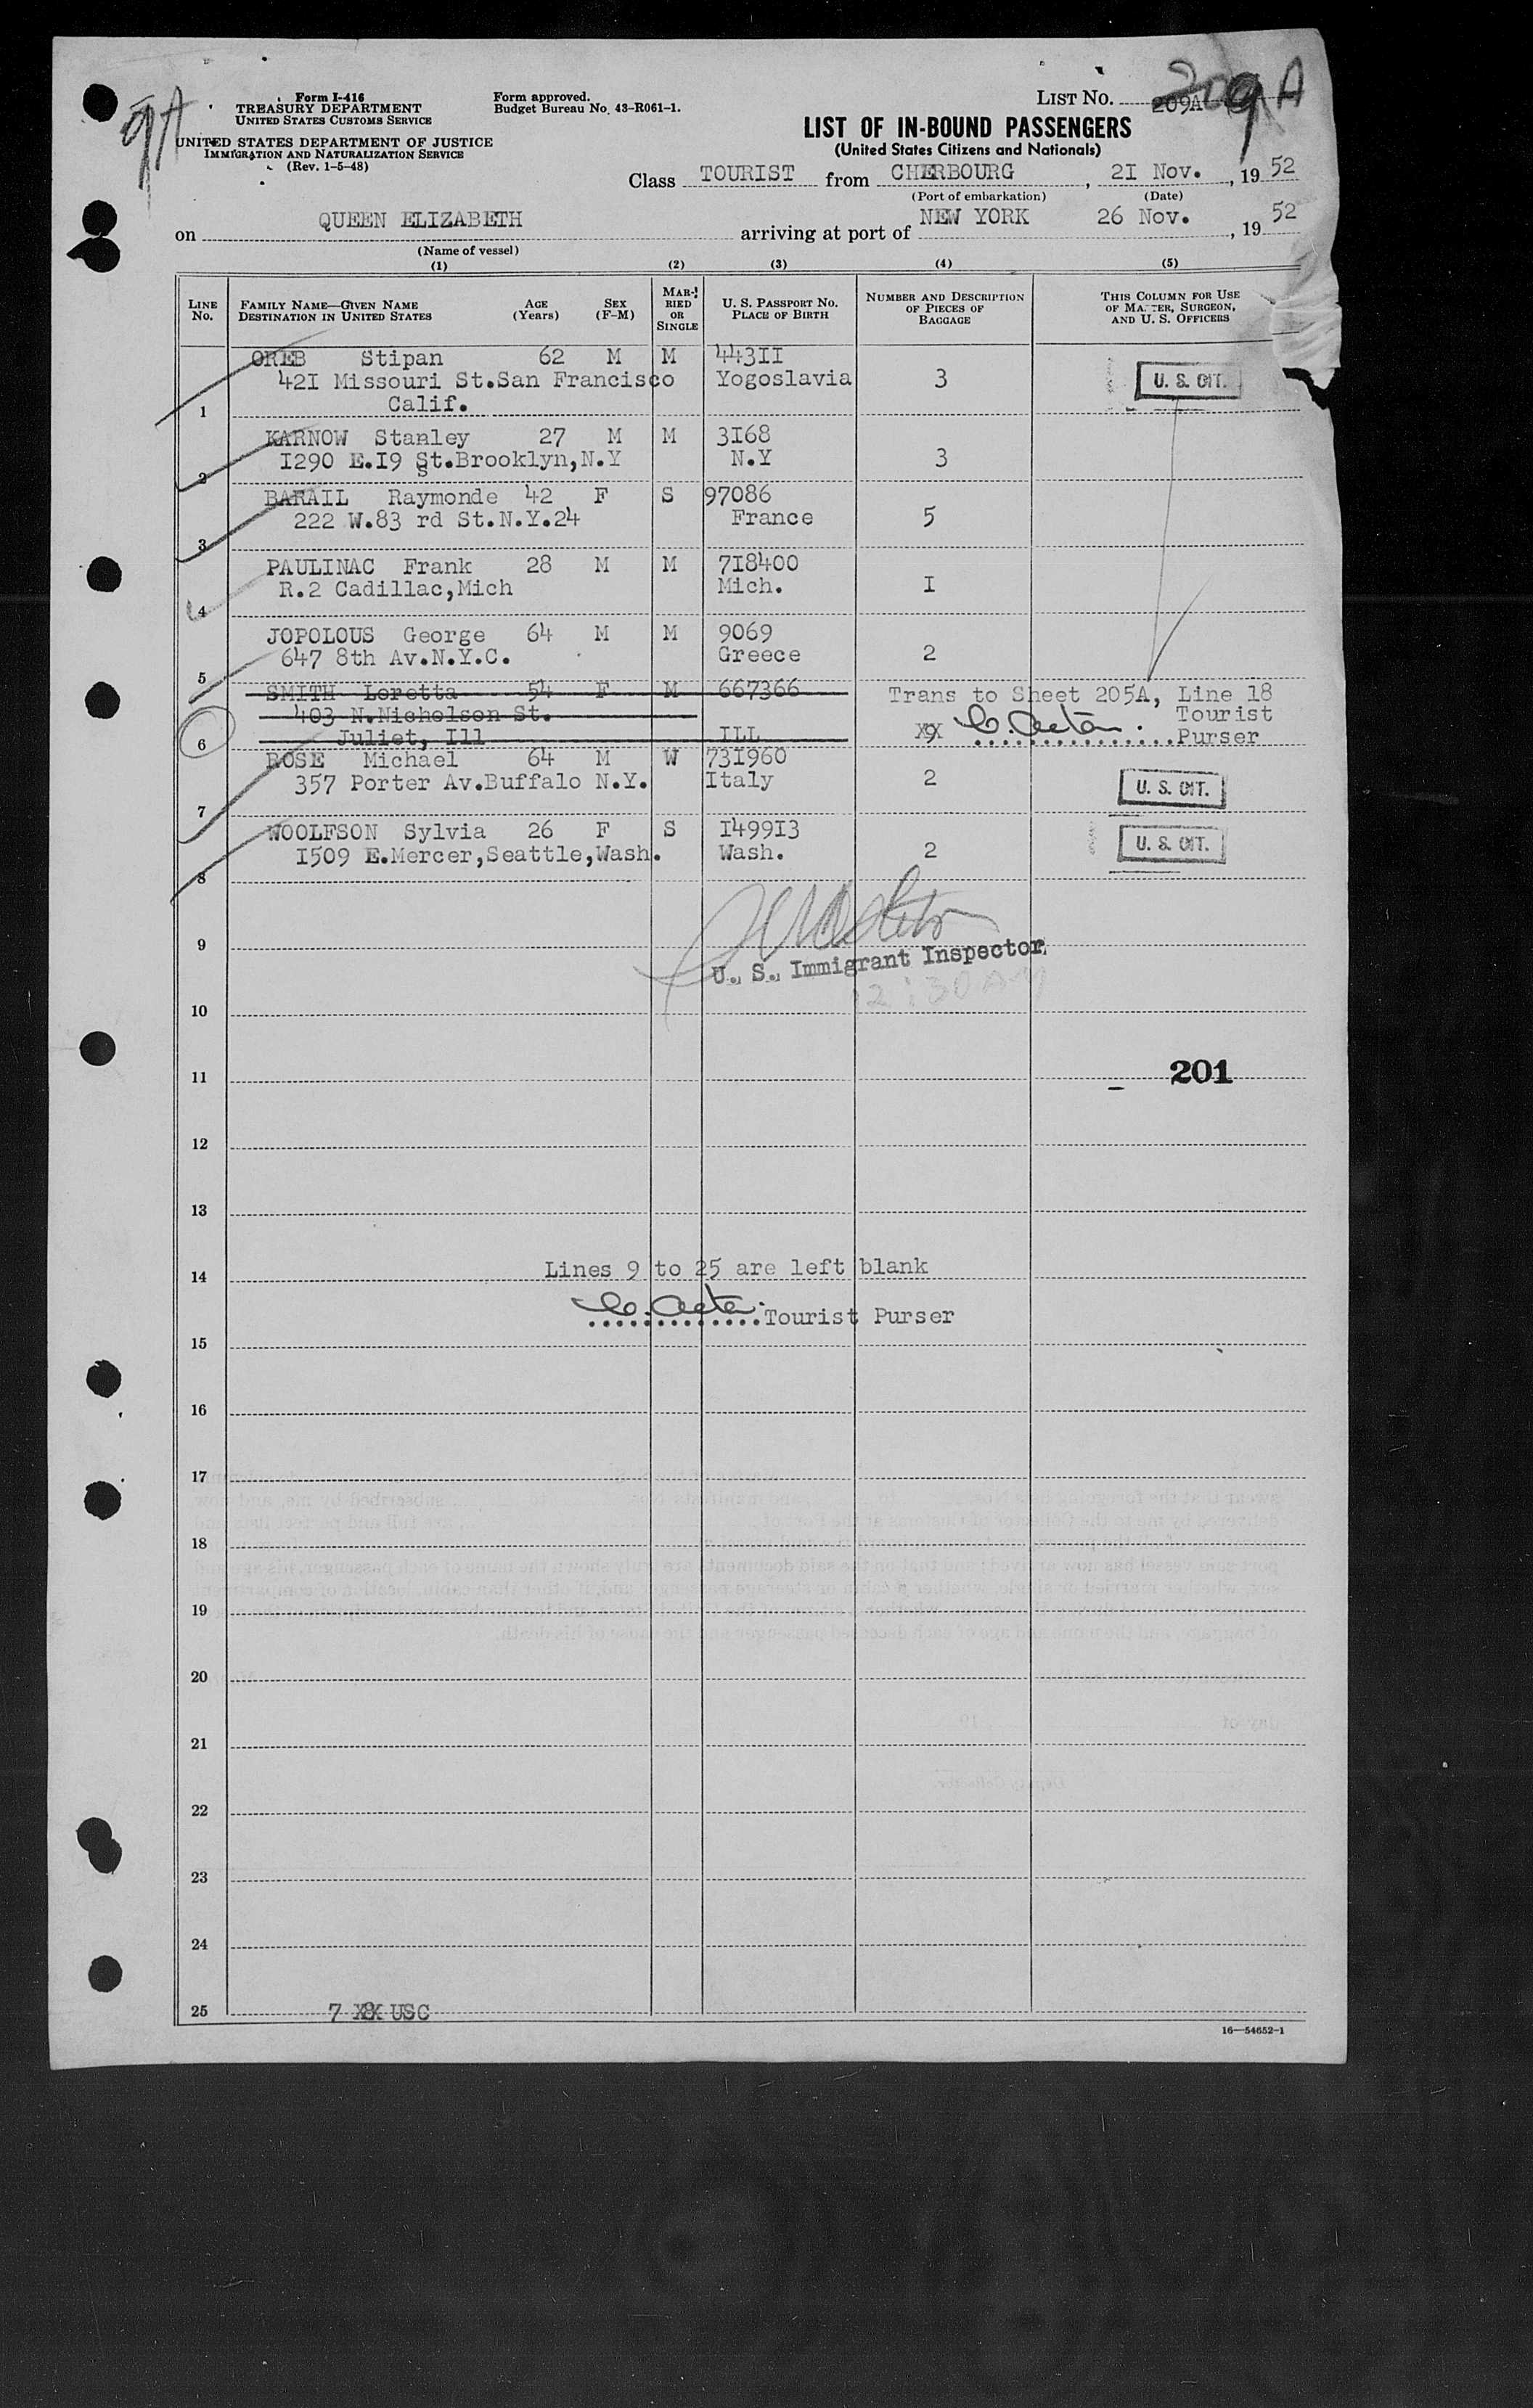 9A
Form I-416
TREASURY DEPARTMENT
UNITED STATES CUSTOMS SERVICE
UNITED STATES DEPARTMENT OF JUSTICE
IMMIGRATION AND NATURALIZATION SERVICE
(Rev. 1-5-48)
Form approved.
Budget Bureau No. 43-R061-1.
LIST No. 209A 209A
LIST OF IN-BOUND PASSENGERS
(United States Citizens and Nationals)
Class TOURIST from CHERBOURG, 2I Nov., 19 52
(Port of embarkation) (Date)
on QUEEN ELIZABETH arriving at port of NEW YORK 26 Nov., 19 52
(Name of vessel)
(1) (2) (3) (4) (5)
LINE No. FAMILY NAME—GIVEN NAME DESTINATION IN UNITED STATES AGE (Years) SEX (F-M) MARRIED OR SINGLE U. S. PASSPORT No. PLACE OF BIRTH NUMBER AND DESCRIPTION OF PIECES OF BAGGAGE THIS COLUMN FOR USE OF MASTER, SURGEON, AND U. S. OFFICERS
OREB Stipan 62 M M 443II
42I Missouri St.San Francisco Yogoslavia 3 U. S. CIT.
1 Calif.
KARNOW Stanley 27 M M 3I68
I290 E.I9 St.Brooklyn,N.Y N.Y 3
2
BARAIL Raymonde 42 F S 97086
222 W.83 rd St.N.Y.24 France 5
3
PAULINAC Frank 28 M M 7I8400
R.2 Cadillac,Mich Mich. I
4
JOPOLOUS George 64 M M 9069
647 8th Av.N.Y.C. Greece 2
5
SMITH Loretta 54 F M 667366 Trans to Sheet 205A, Line 18
403 N.Nicholson St. Tourist
6 Juliet, Ill ILL XX9 Purser
ROSE Michael 64 M W 73I960
357 Porter Av.Buffalo N.Y. Italy 2 U. S. CIT.
7
WOOLFSON Sylvia 26 F S I499I3
I509 E.Mercer,Seattle,Wash. Wash. 2 U. S. CIT.
8
9
U. S. Immigrant Inspector
12:30 AM
10
11 201
12
13
Lines 9 to 25 are left blank
14
Tourist Purser
15
16
17
18
19
20
21
22
23
24
25 7 X8X USC
16—54652-1